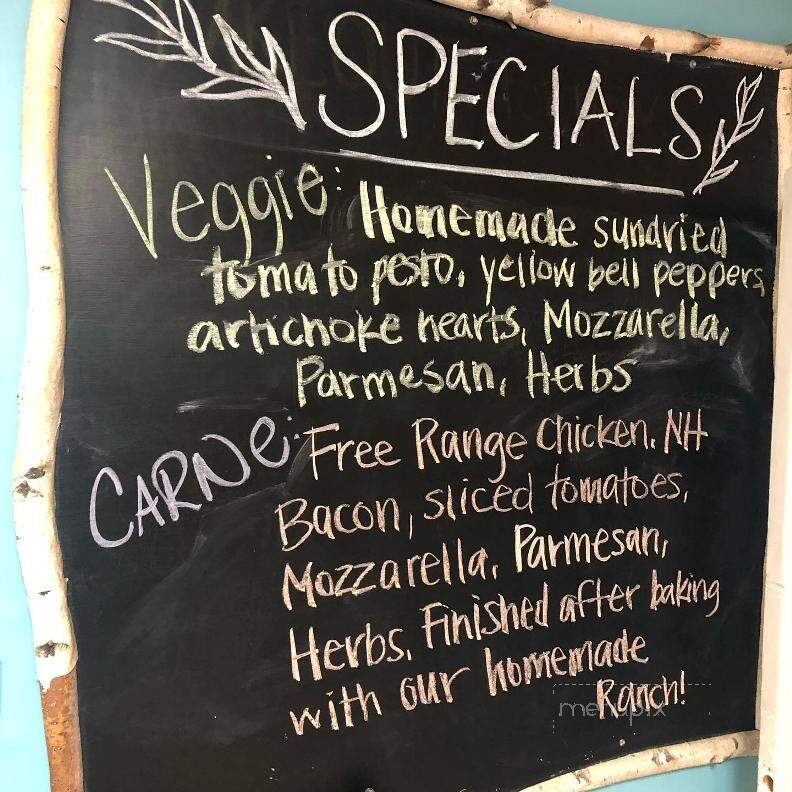 SPECIALS
Veggie: Homemade sundried
tomato pesto, yellow bell peppers,
artichoke hearts, Mozzarella,
Parmesan, Herbs
CARNe: Free Range Chicken, NH
Bacon, sliced tomatoes,
Mozzarella, Parmesan,
Herbs. Finished after baking
with our homemade
Ranch!
menupix